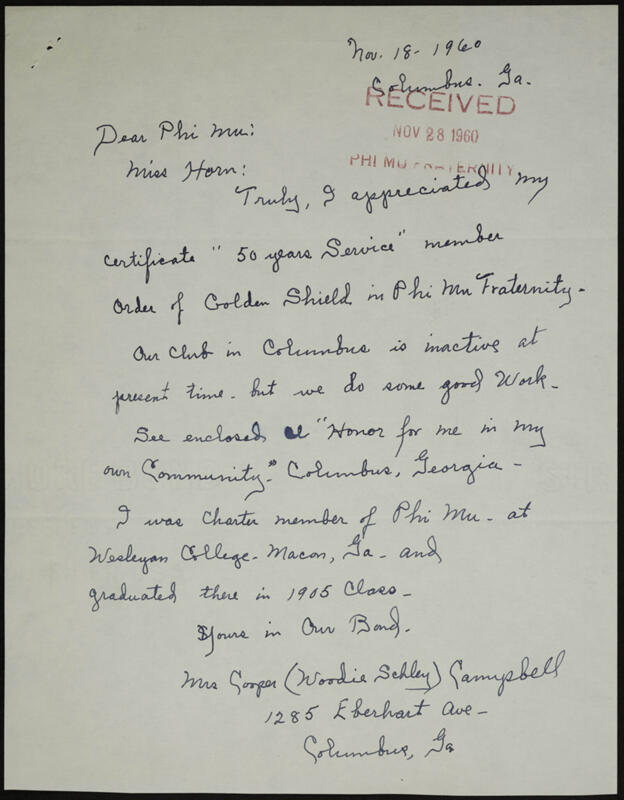 Nov. 18 - 1960
Columbus. Ga.
RECEIVED
NOV 28 1960
PHI MU FRATERNITY
Dear Phi Mu:
Miss Horn:
Truly, I appreciated my
certificate "50 years Service" member
Order of Golden Shield in Phi Mu Fraternity -
Our Club in Columbus is inactive at
present time - but we do some good Work -
See enclosed "Honor for me in my
own Community." Columbus, Georgia -
I was Charter member of Phi Mu - at
Wesleyan College - Macon, Ga - and
graduated there in 1905 Class -
Yours in Our Bond.
Mrs Cooper (Woodie Schley) Campbell
1285 Eberhart Ave -
Columbus, Ga